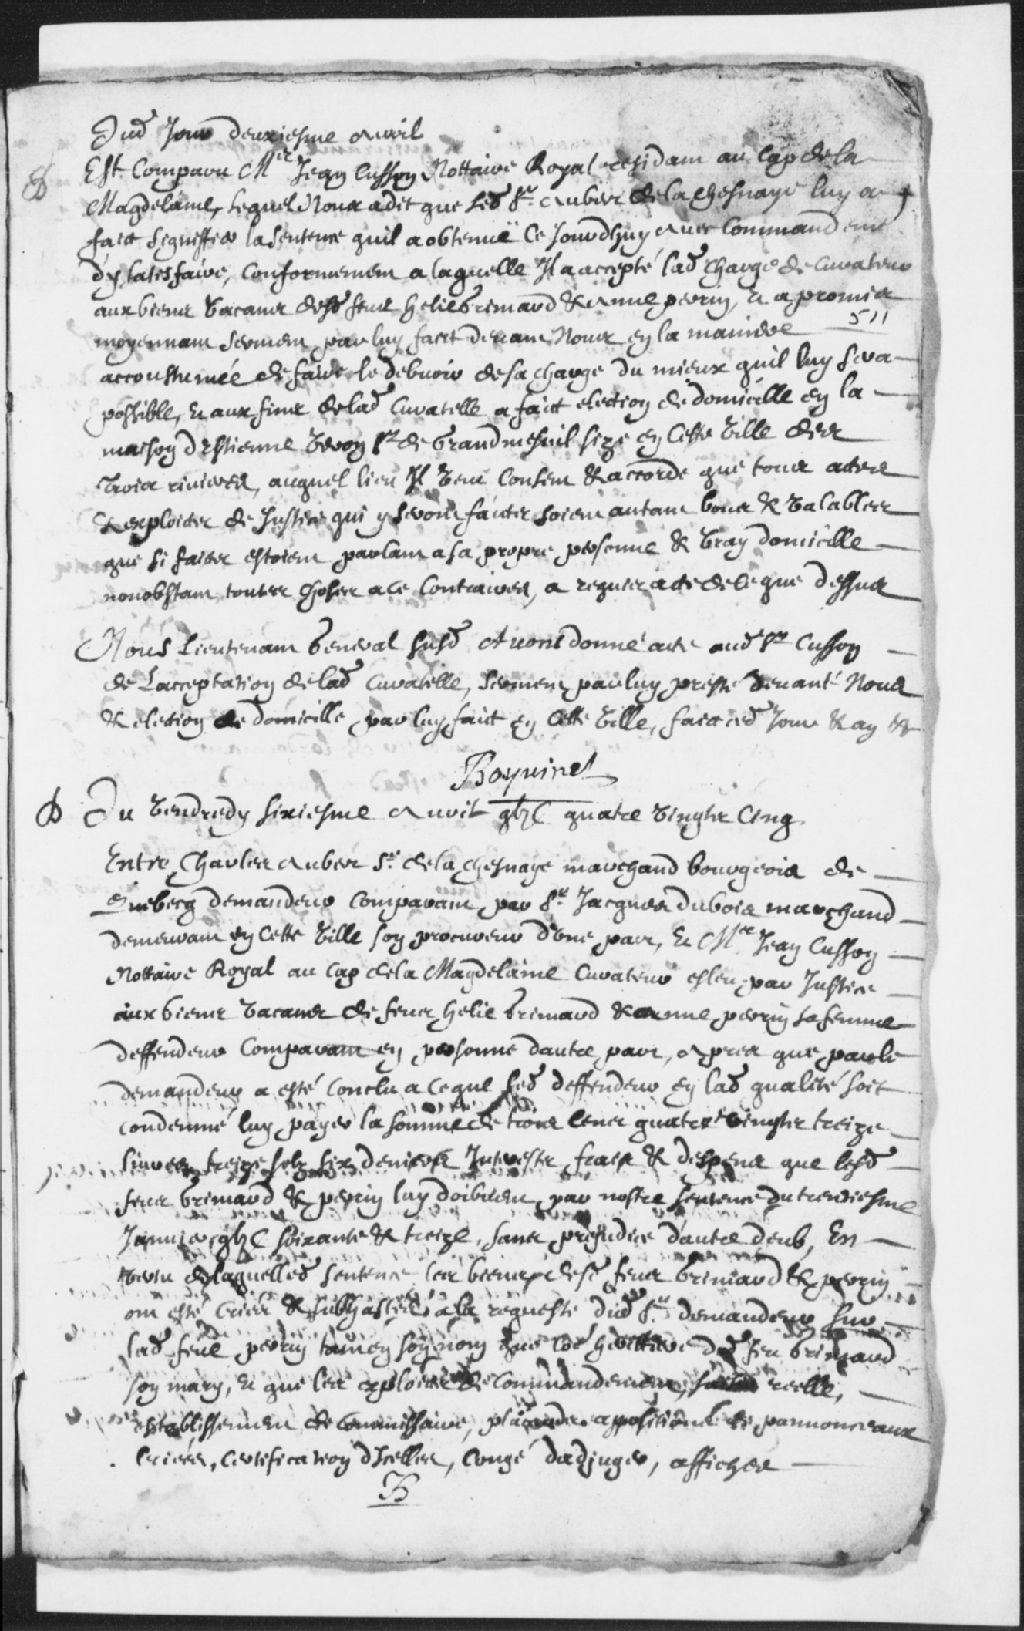 Dud Jour deuxiesme Avril
Est Comparu Mre Jean Cusson Nottaire Royal residant au Cap de la
Magdelaine, Lequel Nous a dit que led Sr Auber de la Chesnaye luy a
faict signiffier la sentence quil a obtenuë Ce Jourdhuy avec Commandemt
d'y satisfaire, Conformement a laquelle Il a accepté lad charge de Curateur
aux biens vacans desd feus helie Grimard & Anne perrin, & a promis
511
moyennant serment par luy faict devant Nous en la maniere
accoustumée de faire le debvoir de sa charge du mieux quil luy sera
possible, & aux fins de lad Curatelle a faict election de domicille en la
maison d'Estienne Veron Sr de Grandmesnil size en Cette Ville des
trois rivieres, auquel lieu Il veut Consent & accorde que tous actes
& exploicts de Justice qui y seront faicts soient autant bons & Valables
que si faicts estoient parlant a sa propre personne & vray domicille
nonobstant touttes choses a ce Contraires, a requis acte de ce que dessus
Nous Lieutenant General susd Avons donné acte aud Sr Cusson
de L'acceptation de lad Curatelle, serment par luy presté devant Nous
& election de domicille par luy faict en Cette Ville, faict led Jour & an &
Boyvinet
Du Vendredy sixiesme Avril gbjC quatre vingts Cinq
Entre Charles Auber Sr de la Chesnaye marchand bourgeois de
Quebecq demandeur Comparant par Sr Jacques dubois marchand
demeurant en Cette Ville son procureur d'une part, Et Mre Jean Cusson
Nottaire Royal au Cap de la Magdelaine Curateur esleu par Justice
aux biens vacans de feus helie Grimard & Anne perrin sa femme
deffendeur Comparant en personne dautre part, Apres que par le
demandeur a esté Conclu a ce que led deffendeur en lad qualité soit
condemné luy payer la somme de trois Cens quatre vingts treize
livres treize sols six deniers Interests fraix & despens que lesd
feus Grimard & perrin luy doibvent par nostre sentence du treiziesme
Janvier gbjC soixante & treize, sans prejudice dautre deub, En
vertu de laquelle sentence les biens desd feus Grimard & perrin
ont esté Criés & subhastés a la requeste dud Sr demandeur sur
lad feue perrin tant en son nom que Coe heritiere dud feu Grimard
son mary, & que les exploicts de Commandement, saisie reelle,
establissement de Commissaire, placards apposition de pannonceaux
Criées, Certification d'Icelles, Congé dadjuger, affiches
JB